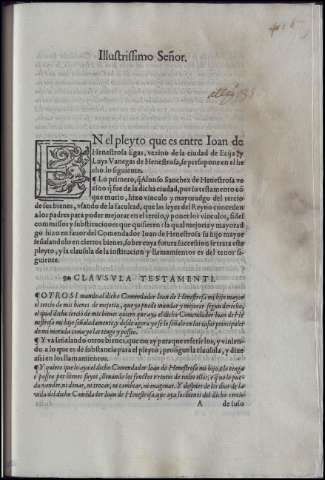 Illustrissimo Señor.
EN el pleyto que es entre Ioan de
Henestrosa Egas, vezino de la ciudad de Ecija y
Luys Vanegas de Henestrosa, se presupone en el he
cho lo siguiente.
¶ Lo primero, q̃ Alonso Sanchez de Henestrosa ve
zino q̃ fue de la dicha ciudad, por su testamento cõ
que murio, hizo vinculo y mayorazgo del tercio
de sus bienes, vsando de la facultad, que las leyes del Reyno conceden
a los padres para poder mejorar en el tercio, y poner los vinculos, fidei
commissos y substituciones que quisierẽ: la qual mejora y mayoraz
go hizo en fauor del Comendador Ioan de Henestrosa su hijo mayor
señalandolo en ciertos bienes, sobre cuya futura succession se trata este
pleyto, y la clausula de la institucion y llamamientos es del tenor si-
guiente.
CLAVSVLA TESTAMENTI.
¶ OTROSI mando al dicho Comendador Ioan de Henestrosa mi hijo mayor
el tercio de mis bienes de mejoria, que yo puedo mandar y mejorar segun derecho,
el qual dicho tercio de mis bienes quiero que aya el dicho Comendador Ioan de He
nestrosa mi hijo señaladamente y desde agora yo se lo señalo en las casas principales
de mi morada como yo las tengo y posseo.
¶ Y va señalando otros bienes, que no ay para que referirlos, y viniẽ-
do a lo que es de substancia para el pleyto, prosigue la clausula, y dize
assi en los llamamientos.
¶ Y quiero que lo aya el dicho Comendador Ioan de Henestrosa mi hijo, e lo tenga
e possea por bienes suyos, lleuando los frutos e rentas de todos ellos, cõ q̃ no lo pue
da vender, ni donar, ni trocar, ni cambiar, ni enagenar. Y despues de los dias de la
vida del dicho Comẽdador Ioan de Henestrosa, que aya los bienes del dicho tercio
A de suso